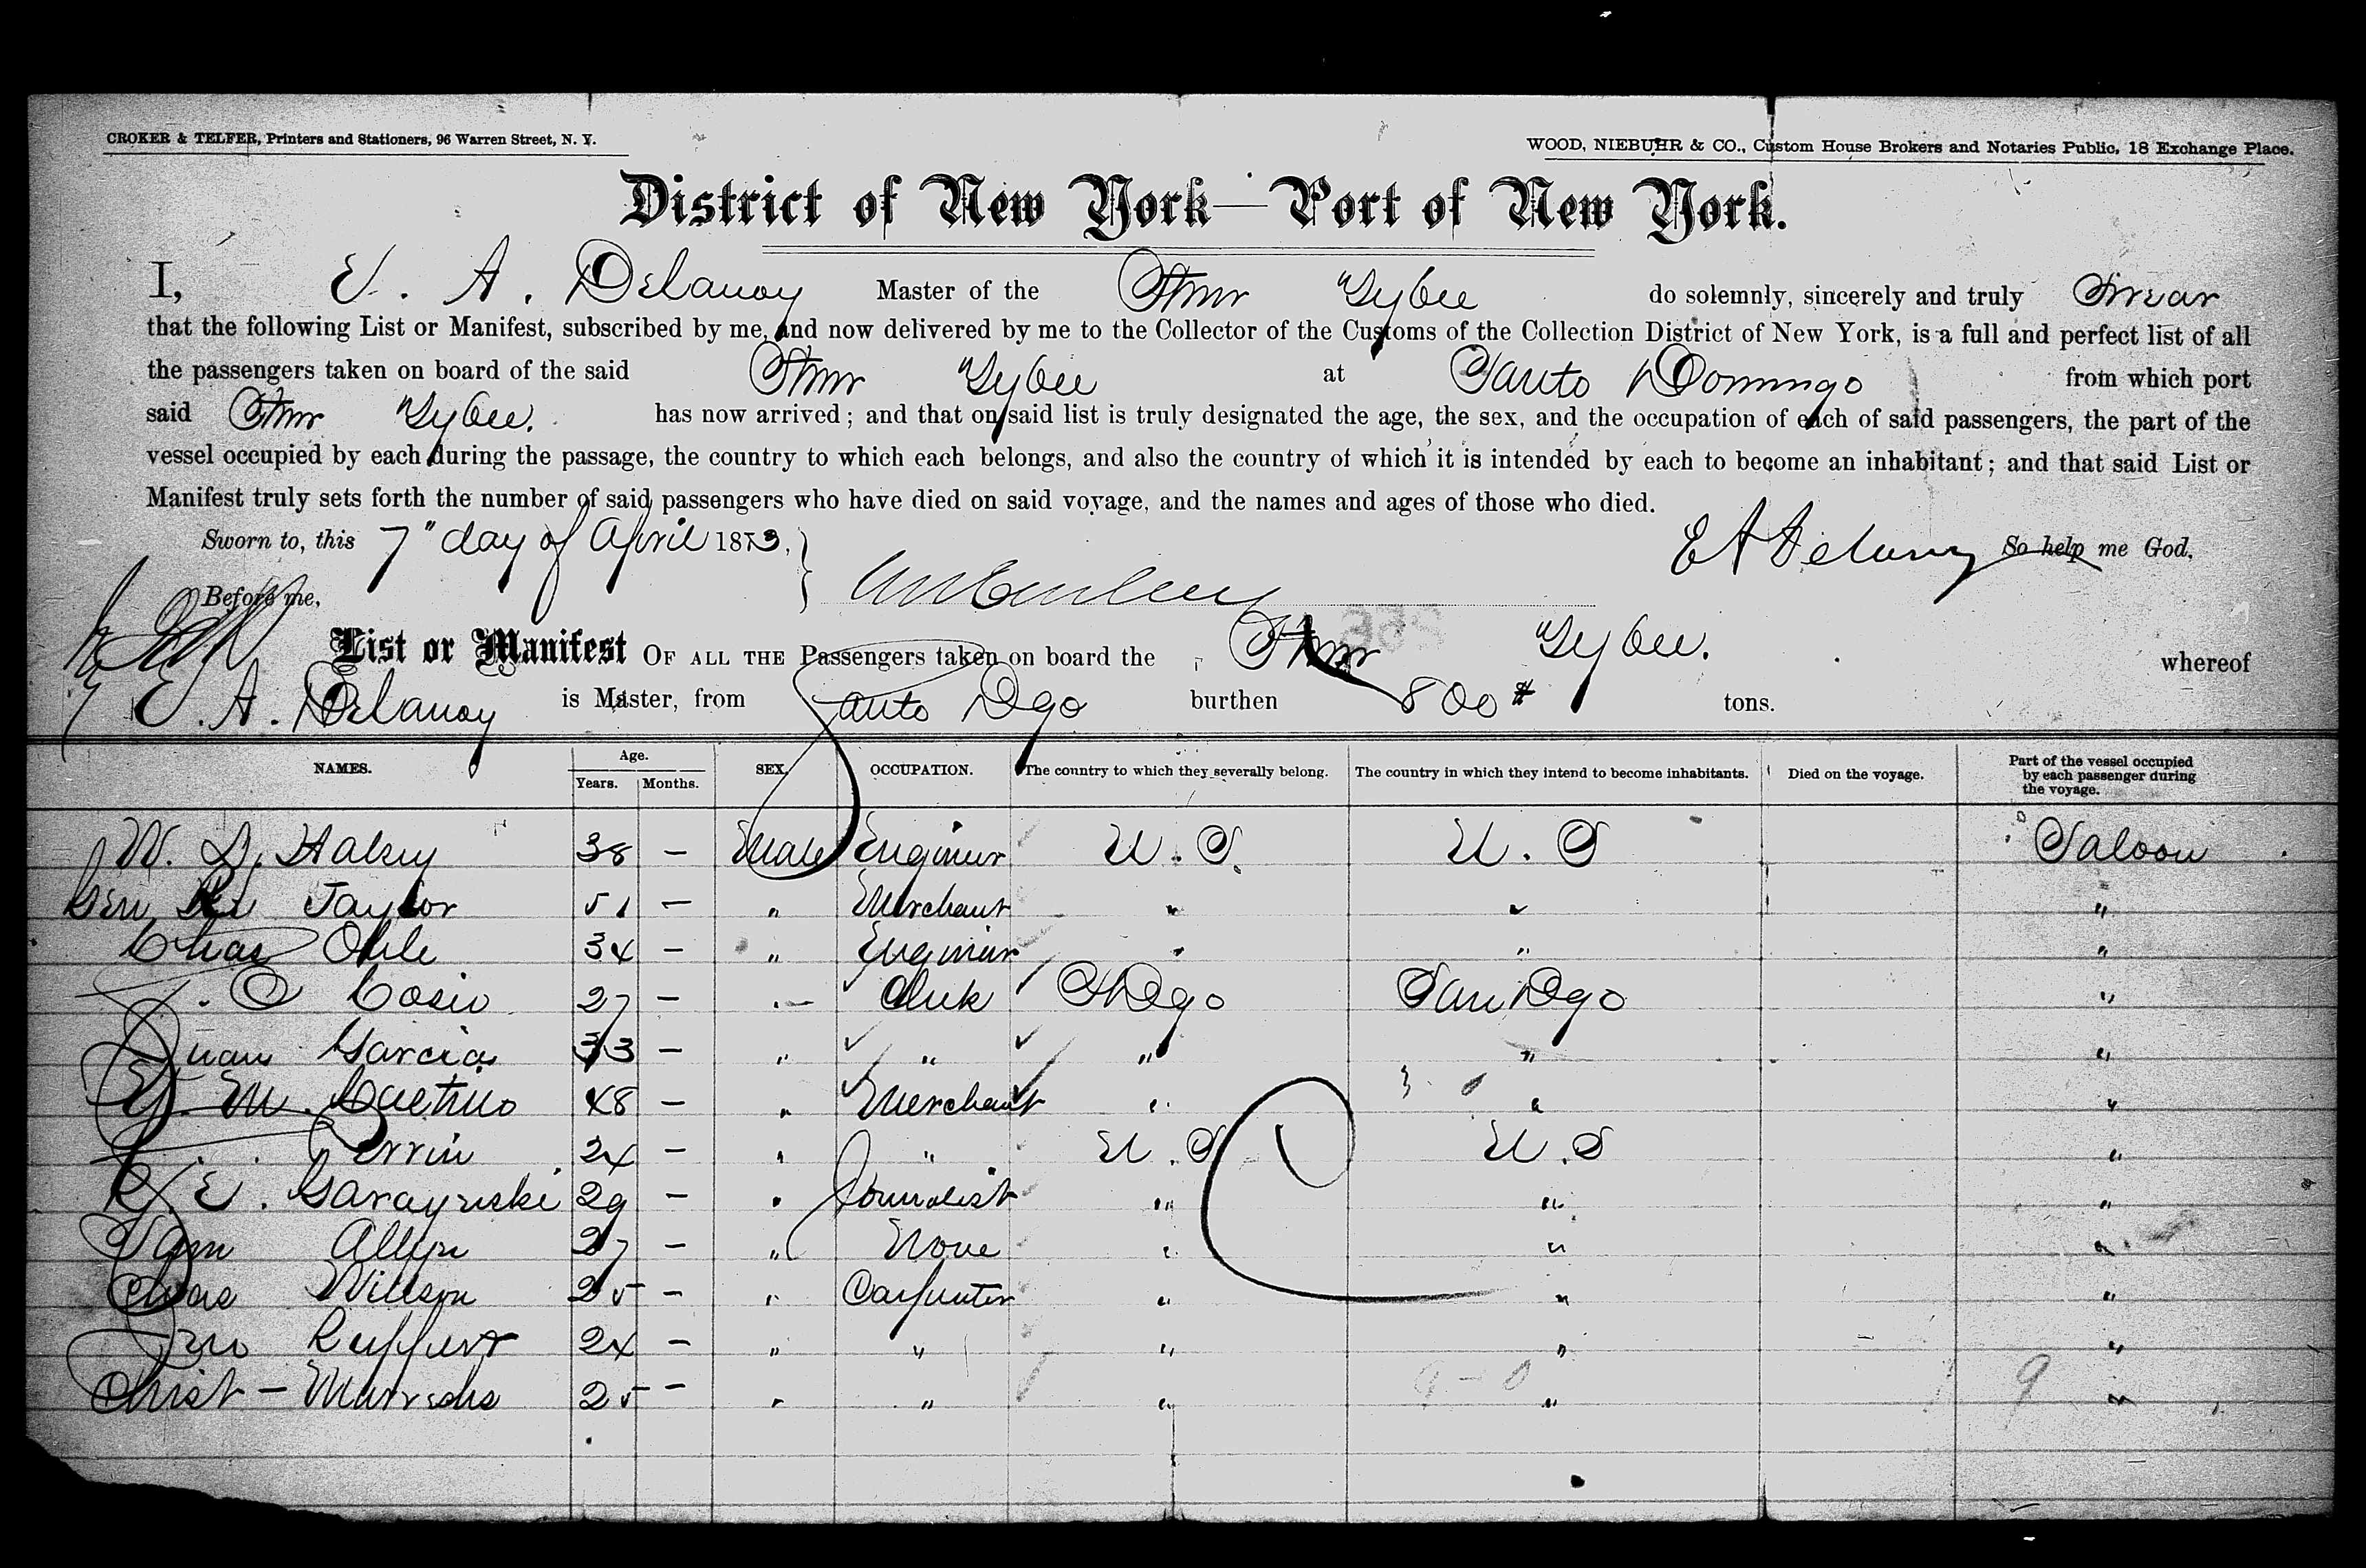 CROKER & TELFER, Printers and Stationers, 96 Warren Street, N. Y.
WOOD, NIEBUHR & CO., Custom House Brokers and Notaries Public, 18 Exchange Place.
District of New York—Port of New York.
I, E. A. Delanoy Master of the Stmr Tybee do solemnly, sincerely and truly Swear
that the following List or Manifest, subscribed by me, and now delivered by me to the Collector of the Customs of the Collection District of New York, is a full and perfect list of all
the passengers taken on board of the said Stmr Tybee at Santo Domingo from which port
said Stmr Tybee. has now arrived; and that on said list is truly designated the age, the sex, and the occupation of each of said passengers, the part of the
vessel occupied by each during the passage, the country to which each belongs, and also the country of which it is intended by each to become an inhabitant; and that said List or
Manifest truly sets forth the number of said passengers who have died on said voyage, and the names and ages of those who died.
Sworn to, this 7" day of April 1873, E A Delanoy So help me God,
Before me,
List or Manifest OF ALL THE Passengers taken on board the Stmr Tybee. whereof
E. A. Delanoy is Master, from Santo Dgo burthen 800 tons.
NAMES. Age. Years. Months. SEX. OCCUPATION. The country to which they severally belong. The country in which they intend to become inhabitants. Died on the voyage. Part of the vessel occupied by each passenger during the voyage.
W. D. Halsey 38 — Male Engineer U. S. U. S Saloon
Taylor 51 — " Merchant " " "
Chas Ohle 34 — " Engineer " " "
J. O Cosio 27 — " Clerk St Dgo San Dgo "
Juan Garcia 33 — " " " " "
M. 48 — " Merchant " " "
Perrin 24 — " " U. S U. S "
E. 29 — " Journalist " " "
Sam Allyn 27 — " None " " "
Chas Willson 25 — " Carpenter " " "
Jno Ruppert 24 — " " " " "
Christ — 25 — " " " " "
9 - 0 9